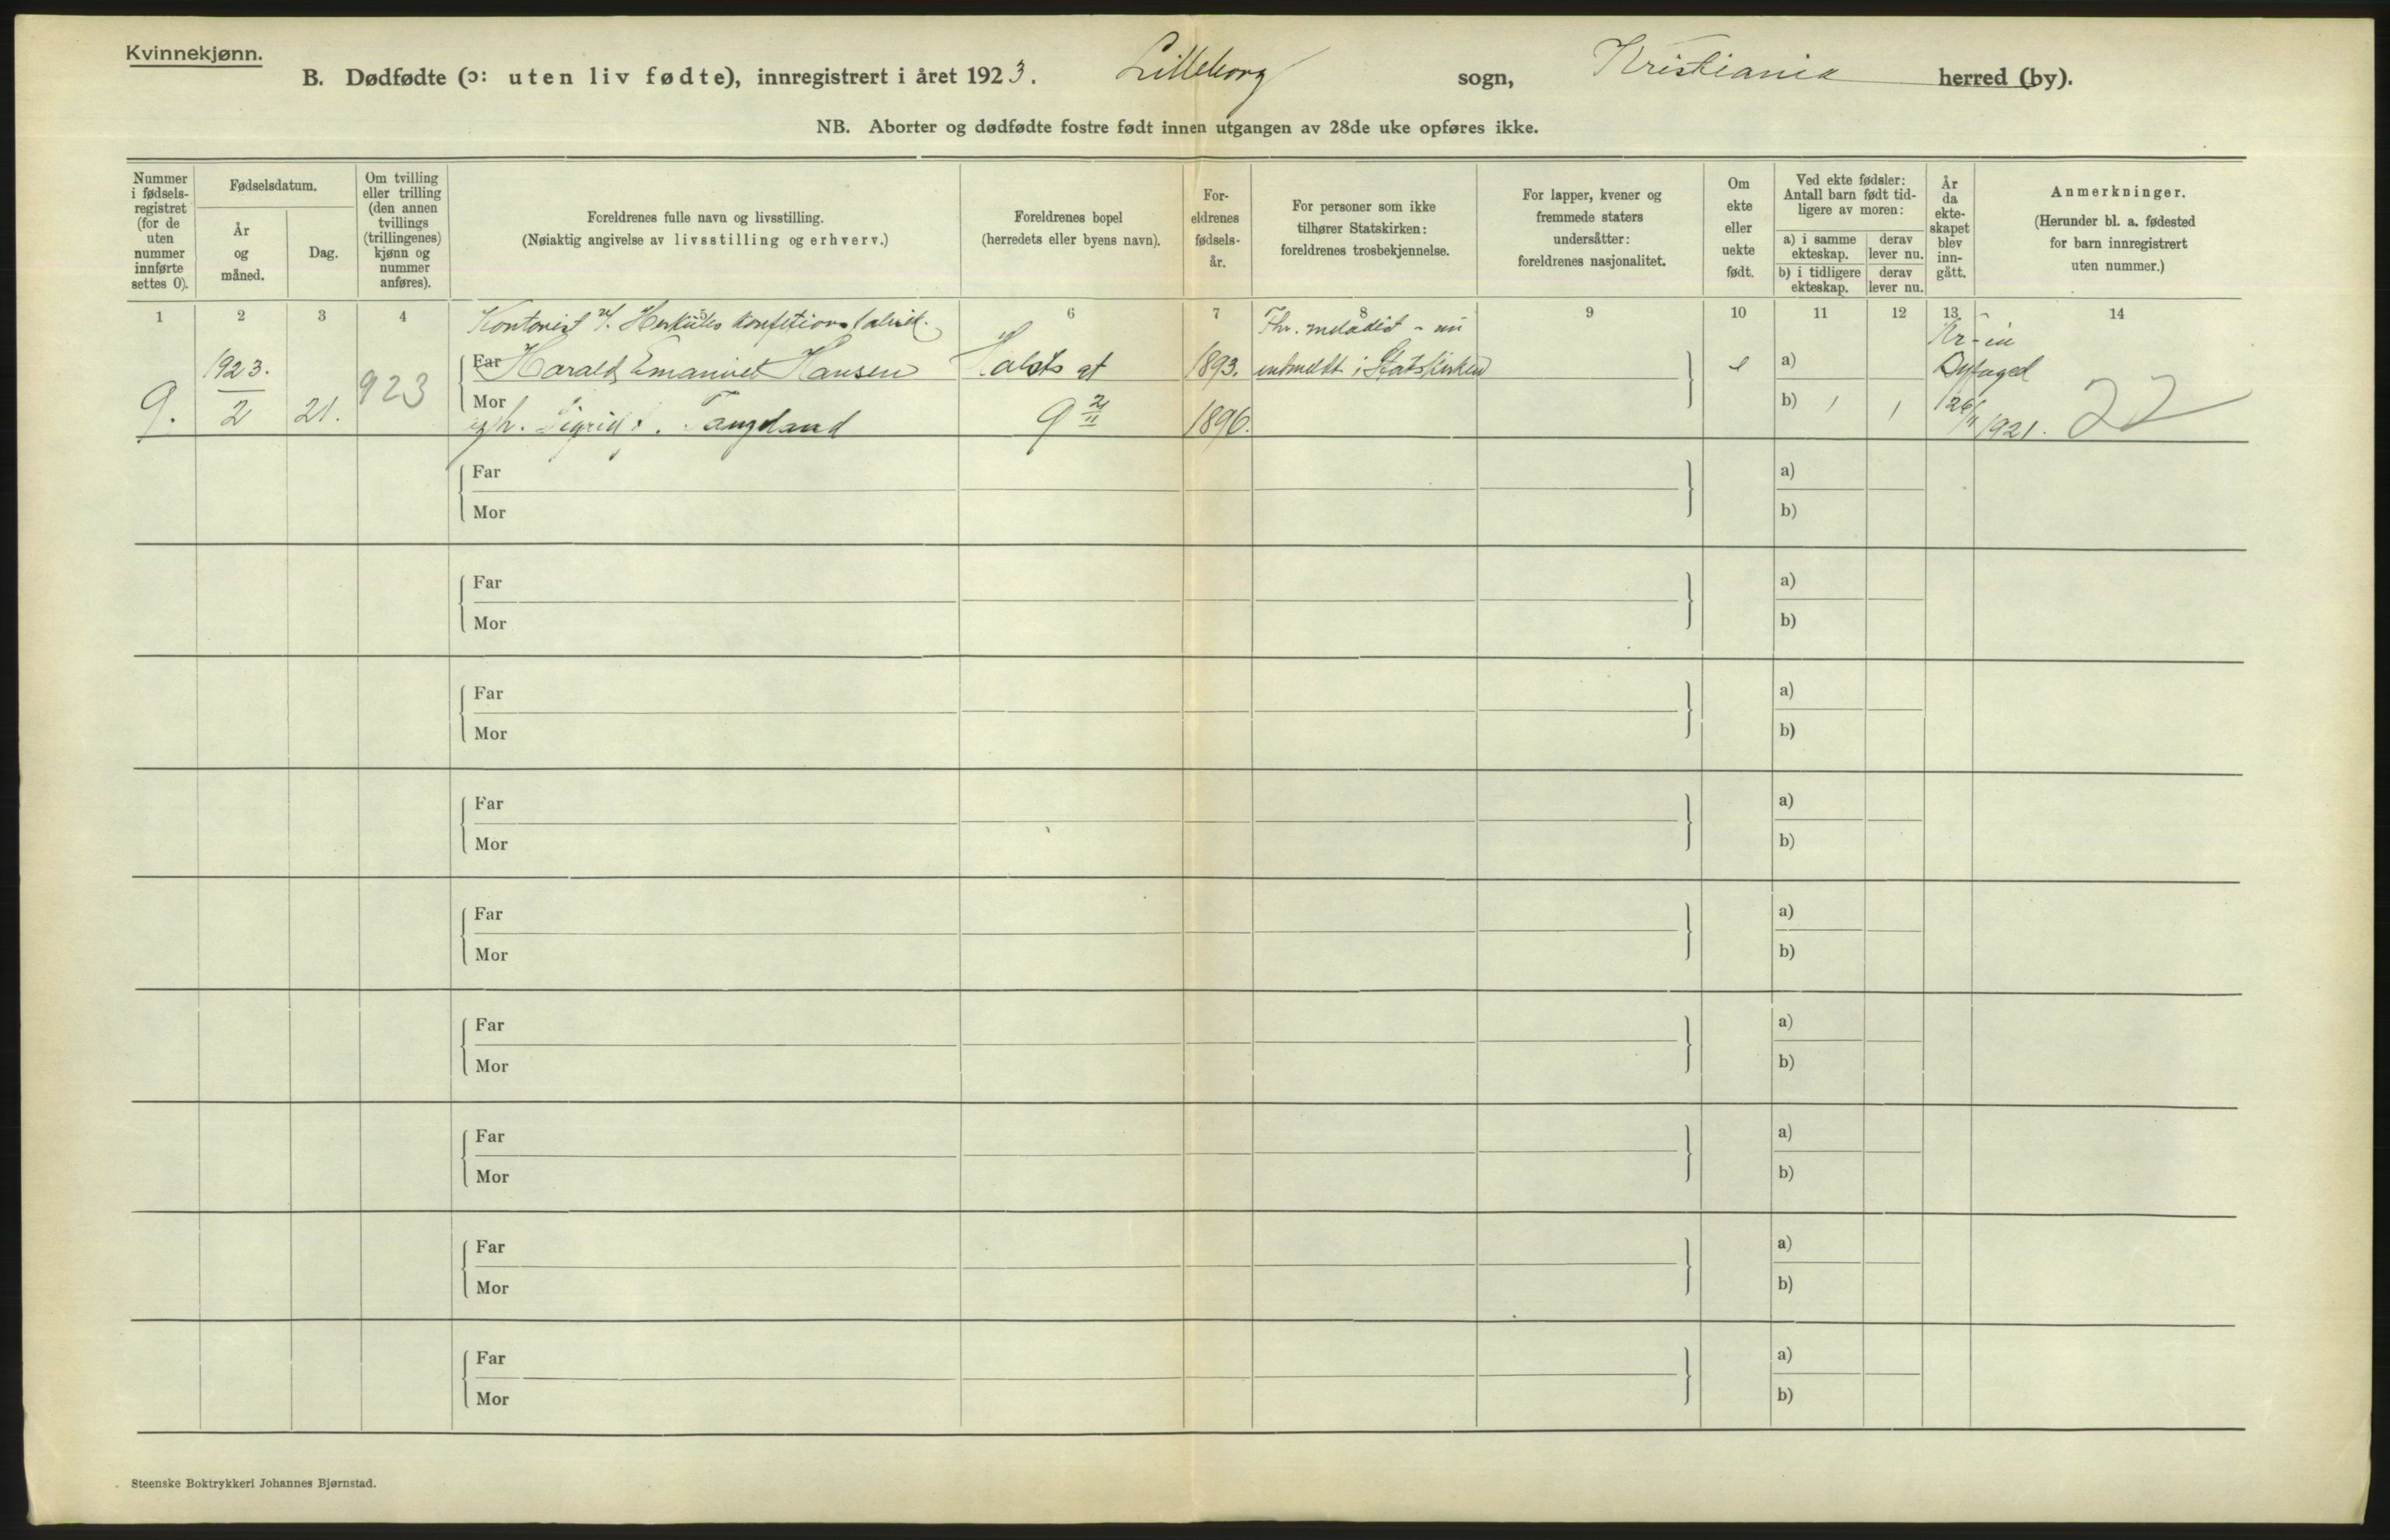 Kvinnekjønn.
B. Dødfødte (ɔ: uten liv fødte), innregistrert i året 1923. Lilleborg sogn, Kristiania herred (by).
NB. Aborter og dødfødte fostre født innen utgangen av 28de uke opføres ikke.
Nummer i fødsels-registret (for de uten nummer innførte settes 0).
Fødselsdatum.
År og måned.
Dag.
Om tvilling eller trilling (den annen tvillings (trillingenes) kjønn og nummer anføres).
Foreldrenes fulle navn og livsstilling.
(Nøiaktig angivelse av livsstilling og erhverv.)
Foreldrenes bopel
(herredets eller byens navn).
For-eldrenes fødsels-år.
For personer som ikke tilhører Statskirken: foreldrenes trosbekjennelse.
For lapper, kvener og fremmede staters undersåtter: foreldrenes nasjonalitet.
Om ekte eller uekte født.
Ved ekte fødsler: Antall barn født tid-ligere av moren:
a) i samme ekteskap.
derav lever nu.
b) i tidligere ekteskap.
derav lever nu.
År da ekte-skapet blev inn-gått.
Anmerkninger.
(Herunder bl. a. fødested for barn innregistrert uten nummer.)
1 2 3 4 6 7 8 9 10 11 12 13 14
Kontorist
9. 1923. 2 21. 923
Far Harald Emanuel Hansen
Holsts gt 1893. indmeldt i Statskirken
a)
Kr-ia
Byfoged
Mor Sigrid Tangeland
9 1896.
b) 1 1
26/11 1921. 22
Far a)
Mor b)
Far a)
Mor b)
Far a)
Mor b)
Far a)
Mor b)
Far a)
Mor b)
Far a)
Mor b)
Far a)
Mor b)
Far a)
Mor b)
Far a)
Mor b)
Steenske Boktrykkeri Johannes Bjørnstad.